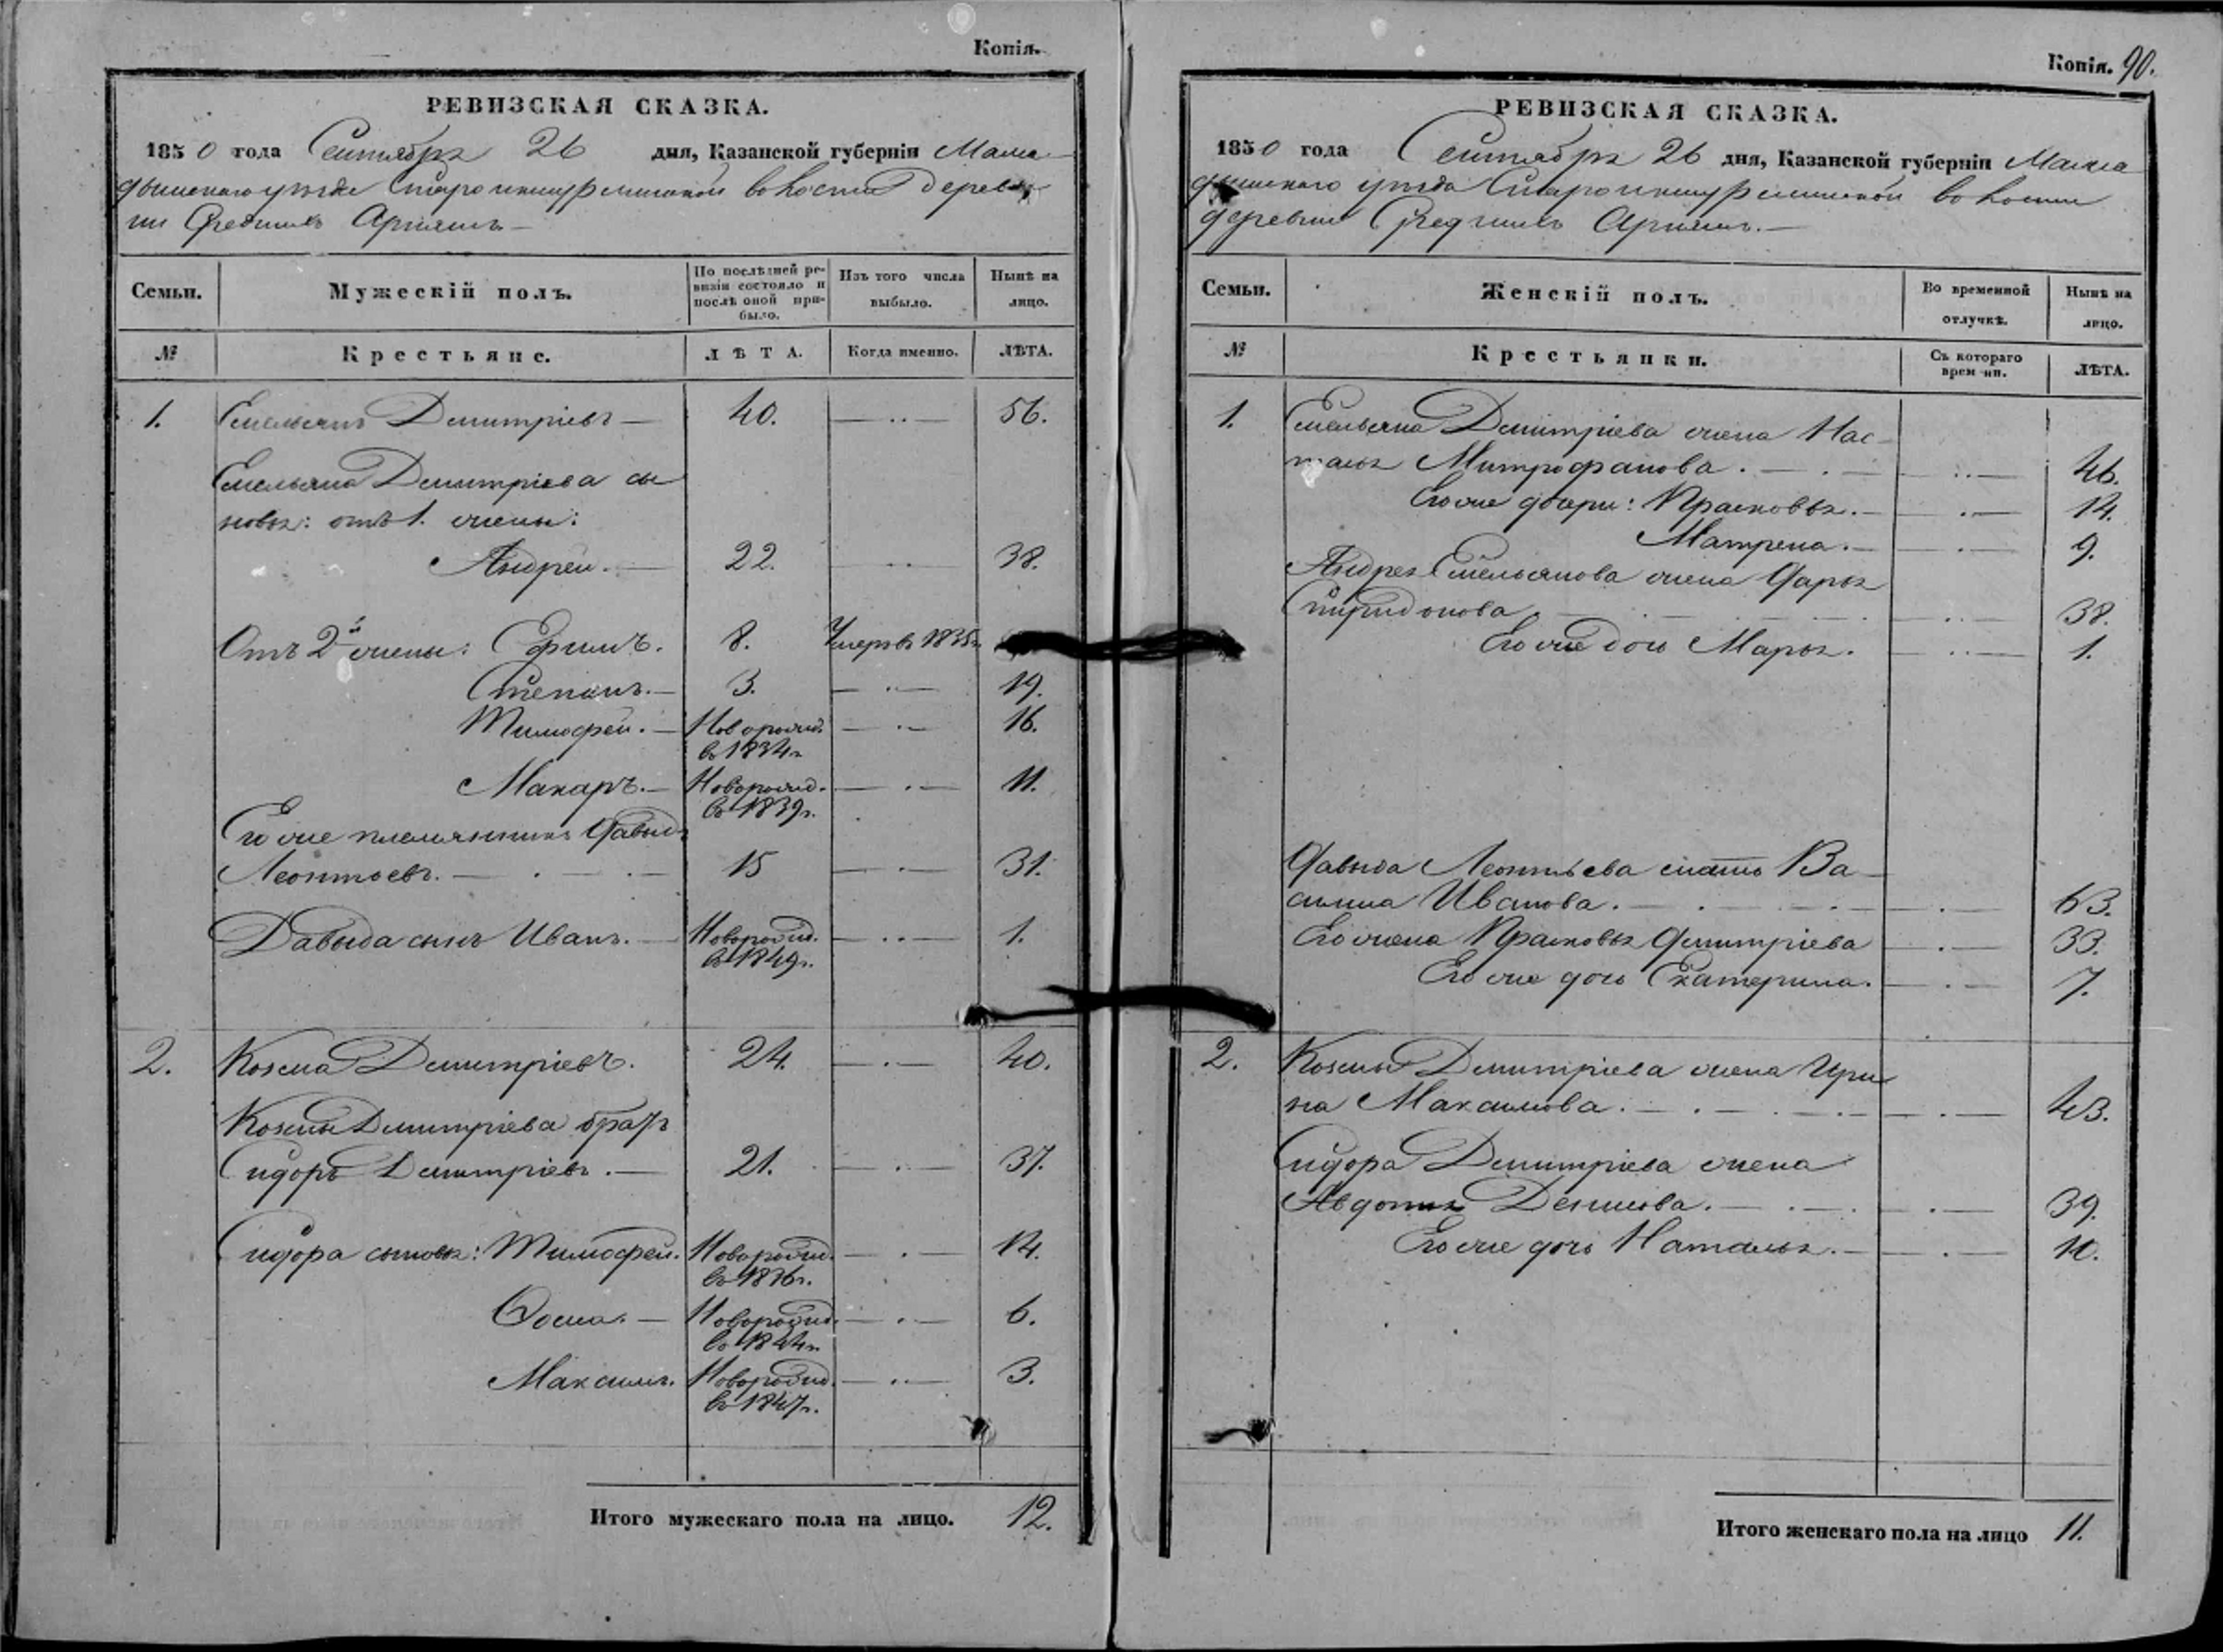 Копія.
РЕВИЗСКАЯ СКАЗКА.
1850 года Сентября 26 дня, Казанской губерніи Мама-
дышскаго уѣзда Староикшурминской волости дерев-
ни Среднихъ Арняшъ
Семьи.
Мужескій полъ.
По послѣдней ре-
визіи состояло и
послѣ оной при-
было.
Изъ того числа
выбыло.
Нынѣ на
лицо.
№
Крестьяне.
ЛѢТА.
Когда именно.
ЛѢТА.
1. Емельянъ Дмитріевъ — 40. — 56.
Емельяна Дмитріева сы
новья: отъ 1. жены:
Андрей. — 22. 38.
Отъ 2й жены: Ефимъ. 8. Умеръ въ 1835г.
Степанъ. — 3. — 19.
Тимофей. — Новорожд. — 16.
въ 1834г.
Макаръ. — Новорожд. — 11.
въ 1839г.
Его же племянникъ Давыдъ
Леонтьевъ. — 15 — 31.
Давыда сынъ Иванъ. — Новорожд. — 1.
въ 1849г.
2. Козма Дмитріевъ. 24. — 40.
Козмы Дмитріева братъ
Сидоръ Дмитріевъ. — 21. — 37.
Сидора сыновья: Тимофей. Новорожд. — 14.
въ 1836г.
Фома. — Новорожд. — 6.
въ 1844г.
Максимъ. Новорожд. — 3.
въ 1847г.
Итого мужескаго пола на лицо. 12.
Копія. 90.
РЕВИЗСКАЯ СКАЗКА.
1850 года Сентября 26 дня, Казанской губерніи Мама
дышскаго уѣзда Староикшурминской волости
деревни Среднихъ Арняшъ. —
Семьи.
Женскій полъ.
Во временной
отлучкѣ.
Нынѣ на
лицо.
№
Крестьянки.
Съ котораго
времени.
ЛѢТА.
1. Емельяна Дмитріева жена Нас-
тасья Митрофанова. — 46.
Его же дочери: Прасковья. — 14.
Матрена. — 9.
Андрея Емельянова жена Дарья
Спиридонова. — 38.
Его же дочь Марья. — 1.
Давыда Леонтьева мать Ва-
силиса Иванова. — 63.
Его жена Прасковья Дмитріева — 33.
Его же дочь Екатерина. — 7.
2. Козмы Дмитріева жена Ири
на Максимова. — 43.
Сидора Дмитріева жена
Авдотья Денисова. — 39.
Его же дочь Наталья. — 10.
Итого женскаго пола на лицо 11.